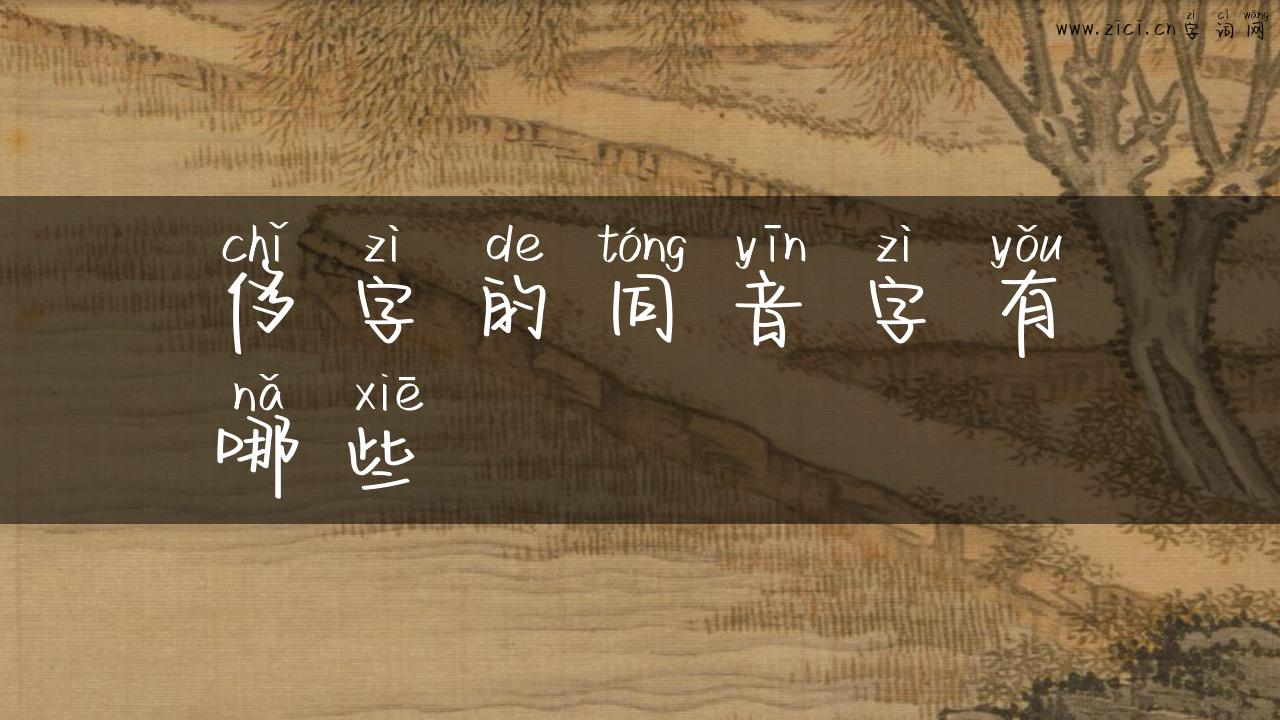 zì cí wǎng
www.zici.cn 字 词 网
chǐ zì de tóng yīn zì yǒu
侈 字 的 同 音 字 有
nǎ xiē
哪 些